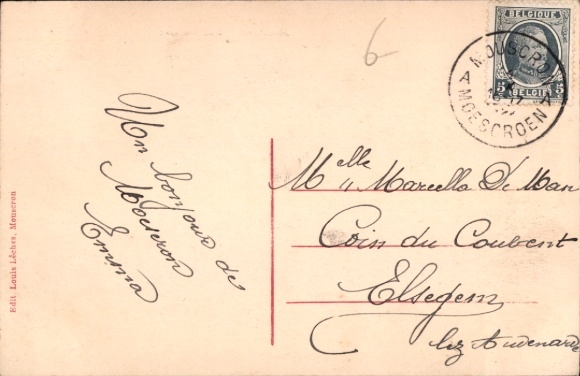 6
BELGIQUE
5 5
BELGIE
MOUSCRON
A MOESCROEN A
Un bonjour de
Mouscron
Emma
Melle Marcella De Man
Coin du Couvent
Elsegem
lez Audenarde
Edit. Louis Lèches, Mouscron